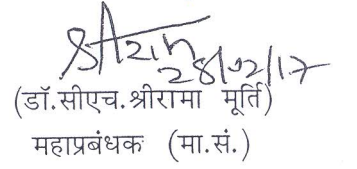 28/02/17
(डॉ.सीएच.श्रीरामा मूर्ति)
महाप्रबंधक (मा.सं.)